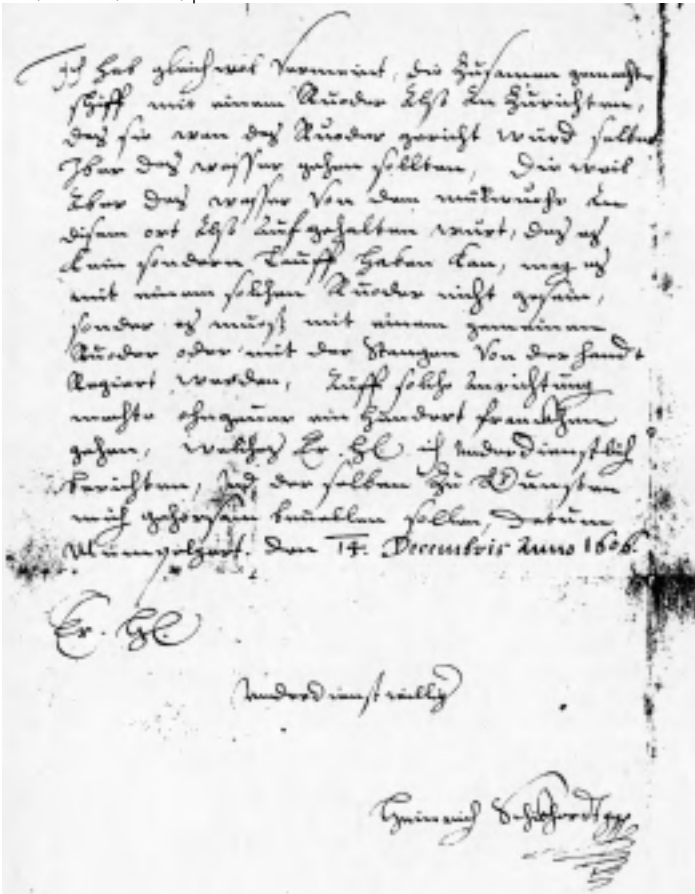 Ich hab gleichwol Vermeint, die Zusamen gemachte
schiff mit einem Ruoder Alß An Zurichten,
das sie wan das Ruoder gericht wurd selber
Iber das wasser gehen sollten, Die weil
Aber das wasser Von dem mülwuohr An
disem ort Alß Auf gehalten wurt, das es
kain sondern Lauff haben kan, mag es
mit einem solchen Ruoder nicht gesein,
sonder es muoß mit einem gemeinen
Ruoder oder mit der Stangen Von der handt
Regiert werden, Auff solche Anrichtung
mechte ohngeuar ein hundert franckhen
gehen, welches Er. Hl. ich Underdienstlich
berichten, Und der selben Zu Gunsten
mich gehorsam beuellen sollen, Datum
Mümpelgart. den 14. Decembris Anno 1606.
Er. Hl.
Underdienstwillig
Heinrich Schickhardt